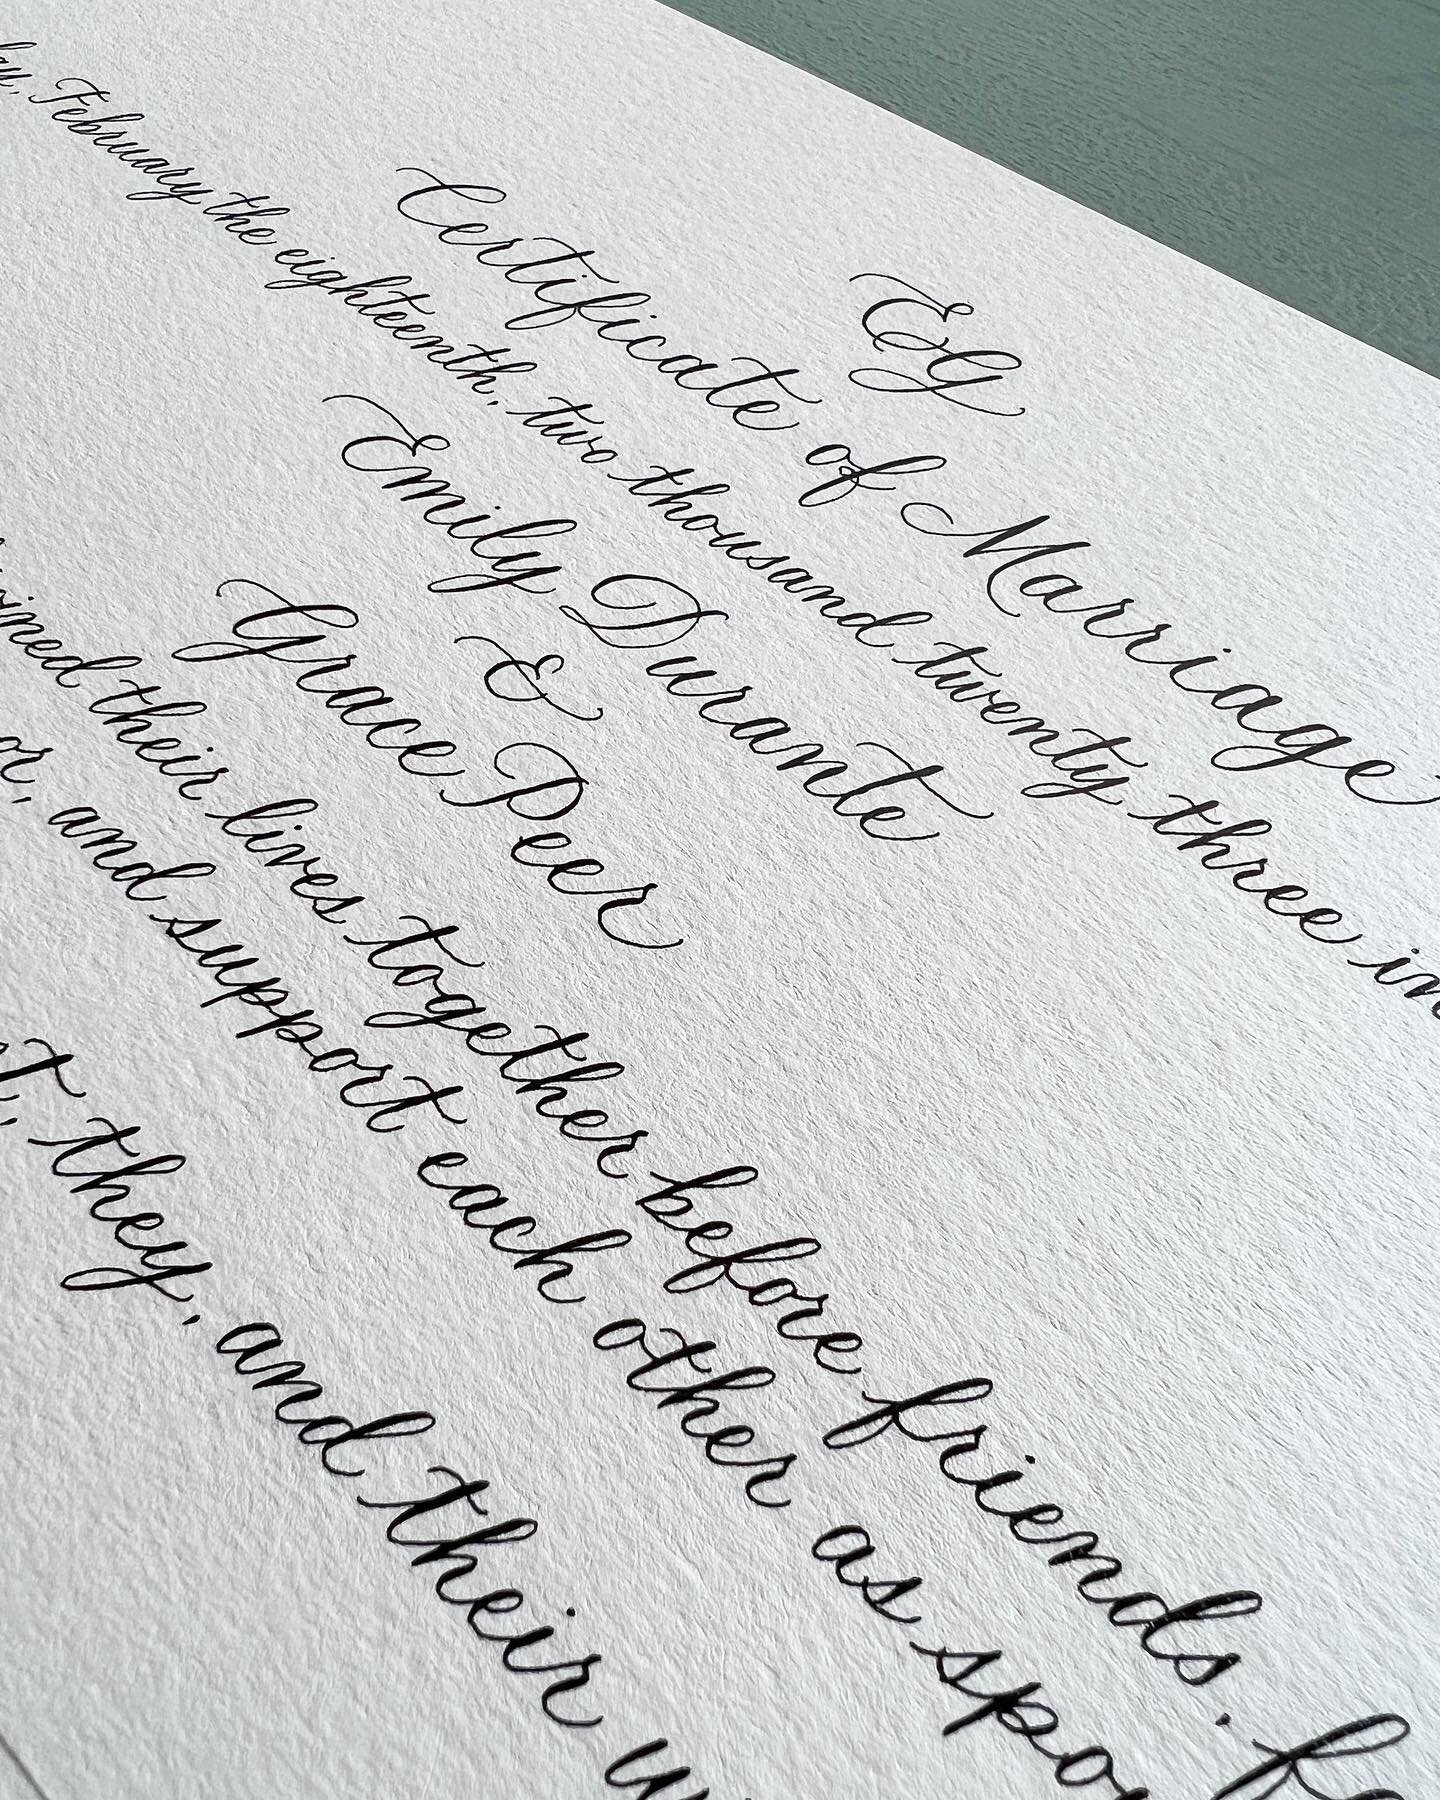 EG
Certificate of Marriage
February the eighteenth, two thousand twenty three in
Emily Durante
&
Grace Peer
their lives together before friends, fa
or, and support each other as spo
they, and their